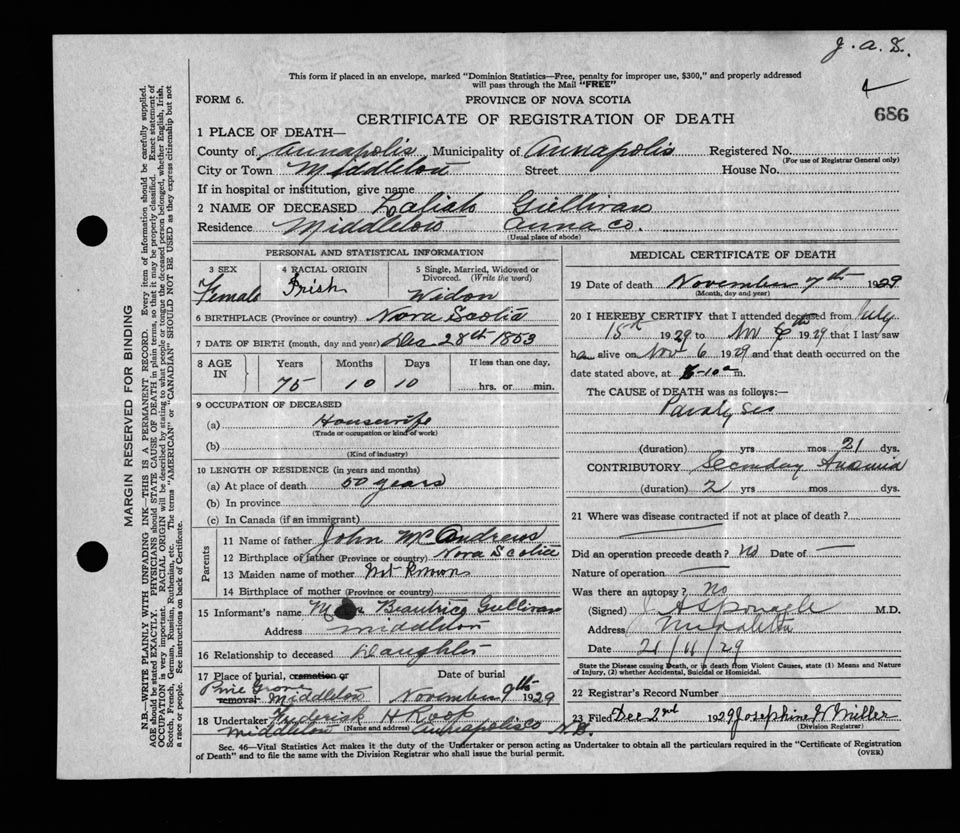 J. A. D.
This form if placed in an envelope, marked "Dominion Statistics—Free, penalty for improper use, $300," and properly addressed
will pass through the Mail "FREE"
FORM 6.
PROVINCE OF NOVA SCOTIA
686
CERTIFICATE OF REGISTRATION OF DEATH
1 PLACE OF DEATH—
County of Annapolis Municipality of Annapolis Registered No.
(For use of Registrar General only)
City or Town Middleton Street House No.
If in hospital or institution, give name
2 NAME OF DECEASED Gullivan
Residence Middleton Anna Co.
(Usual place of abode)
PERSONAL AND STATISTICAL INFORMATION
3 SEX 4 RACIAL ORIGIN 5 Single, Married, Widowed or
Divorced. (Write the word)
Female Irish Widow
6 BIRTHPLACE (Province or country) Nova Scotia
7 DATE OF BIRTH (month, day and year) Dec 28th 1853
8 AGE IN Years Months Days If less than one day.
75 10 10 hrs. or min.
9 OCCUPATION OF DECEASED
(a) Housewife
(Trade or occupation or kind of work)
(b)
(Kind of industry)
10 LENGTH OF RESIDENCE (in years and months)
(a) At place of death 50 years
(b) In province
(c) In Canada (if an immigrant)
Parents
11 Name of father John McAndrews
12 Birthplace of father (Province or country) Nova Scotia
13 Maiden name of mother Not Known
14 Birthplace of mother (Province or country)
15 Informant's name Beatrice Gullivan
Address Middleton
16 Relationship to deceased Daughter
17 Place of burial, cremation or
removal Date of burial
Pine Grove Middleton November 9th 1929
18 Undertaker Frederick H Roop
(Name and address)
Middleton Annapolis Co N.S.
MEDICAL CERTIFICATE OF DEATH
19 Date of death November 7th 1929
(Month, day and year)
20 I HEREBY CERTIFY that I attended deceased from July
15th 1929 to Nov 6th 1929 that I last saw
h alive on Nov 6 1929 and that death occurred on the
date stated above, at m.
The CAUSE OF DEATH was as follows:—
Paralysis
(duration) yrs mos 21 dys.
CONTRIBUTORY Secondary Anaemia
(duration) 2 yrs mos dys.
21 Where was disease contracted if not at place of death?
Did an operation precede death? No Date of —
Nature of operation —
Was there an autopsy? No
(Signed) M.D.
Address Middleton
Date 21/11/29
State the Disease causing Death, or in death from Violent Causes, state (1) Means and
Nature of Injury, (2) whether Accidental, Suicidal or Homicidal.
22 Registrar's Record Number
23 Filed Dec 2nd 1929 Josephine W Miller
(Division Registrar)
Sec. 46—Vital Statistics Act makes it the duty of the Undertaker or person acting as Undertaker to obtain all the particulars required in the "Certificate of Registration
of Death" and to file the same with the Division Registrar who shall issue the burial permit.
(OVER)
MARGIN RESERVED FOR BINDING
N.B.—WRITE PLAINLY WITH UNFADING INK—THIS IS A PERMANENT RECORD. Every item of information should be carefully supplied.
AGE should be stated EXACTLY. PHYSICIANS should STATE CAUSE OF DEATH in plain terms, so that it may be properly classified. Exact statement of
OCCUPATION is very important. RACIAL ORIGIN will be described by stating to what people or tongue the deceased person belonged, whether English, Irish,
Scotch, French, German, Russian, Ruthenian, etc. The terms "AMERICAN" or "CANADIAN" SHOULD NOT BE USED as they express citizenship but not
a race or people. See instructions on back of Certificate.